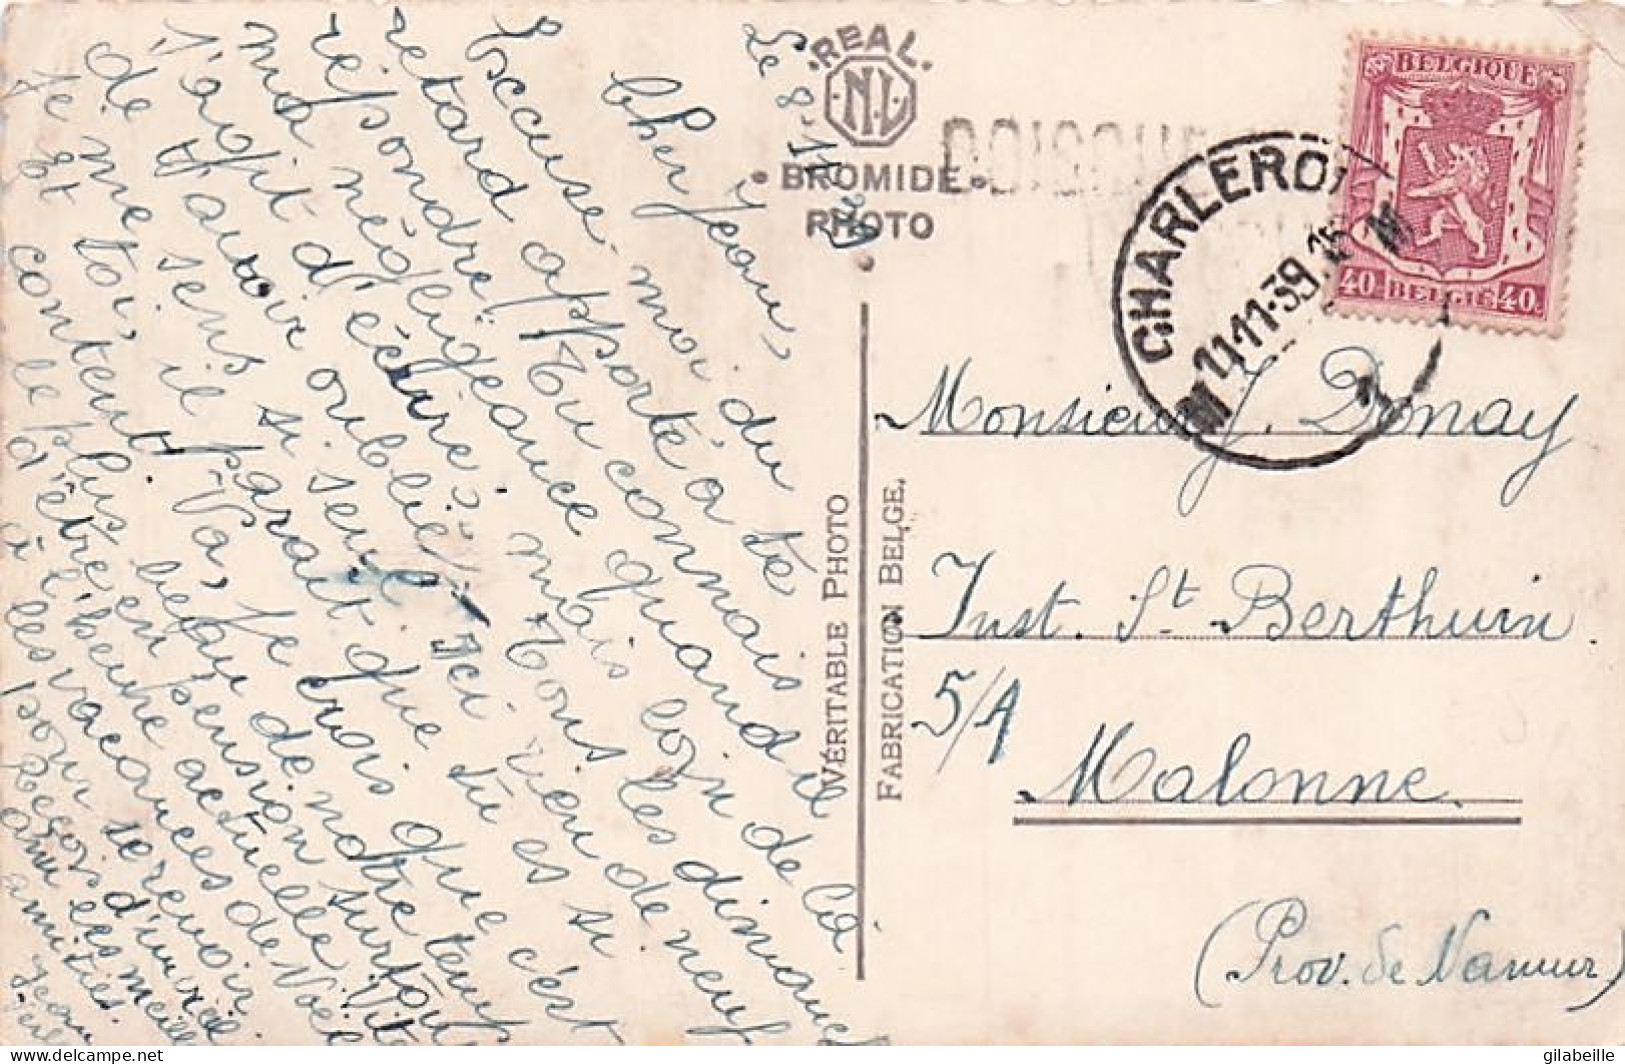 Le 8-11-39
Cher Jean,
Excuse-moi du
retard apporté à te
répondre. Tu connais
ma négligeance quand il
s'agit d'écrire ? mais loin de là
de t'avoir oublié ! Tous les dimanches
je me sens si seul. Ici rien de neuf
Et toi, il parait que tu es si
content. Va, je crois que c'est
le plus beau de notre temps
d'être en pension surtout
à l'heure actuelle. Vite
les vacances de Noël
pour se revoir.
Reçois d'un vieil
ami ses meilleures
amitiés.
Jean
REAL
N.L.
BROMIDE
PHOTO
VÉRITABLE PHOTO
FABRICATION BELGE.
CHARLEROI
11-11-39
1
BELGIQUE
40 BELGIË 40c
Monsieur J. Donay
Inst. St Berthuin.
5/A
Malonne.
(Prov. de Namur)
delcampe.net
gilabeille